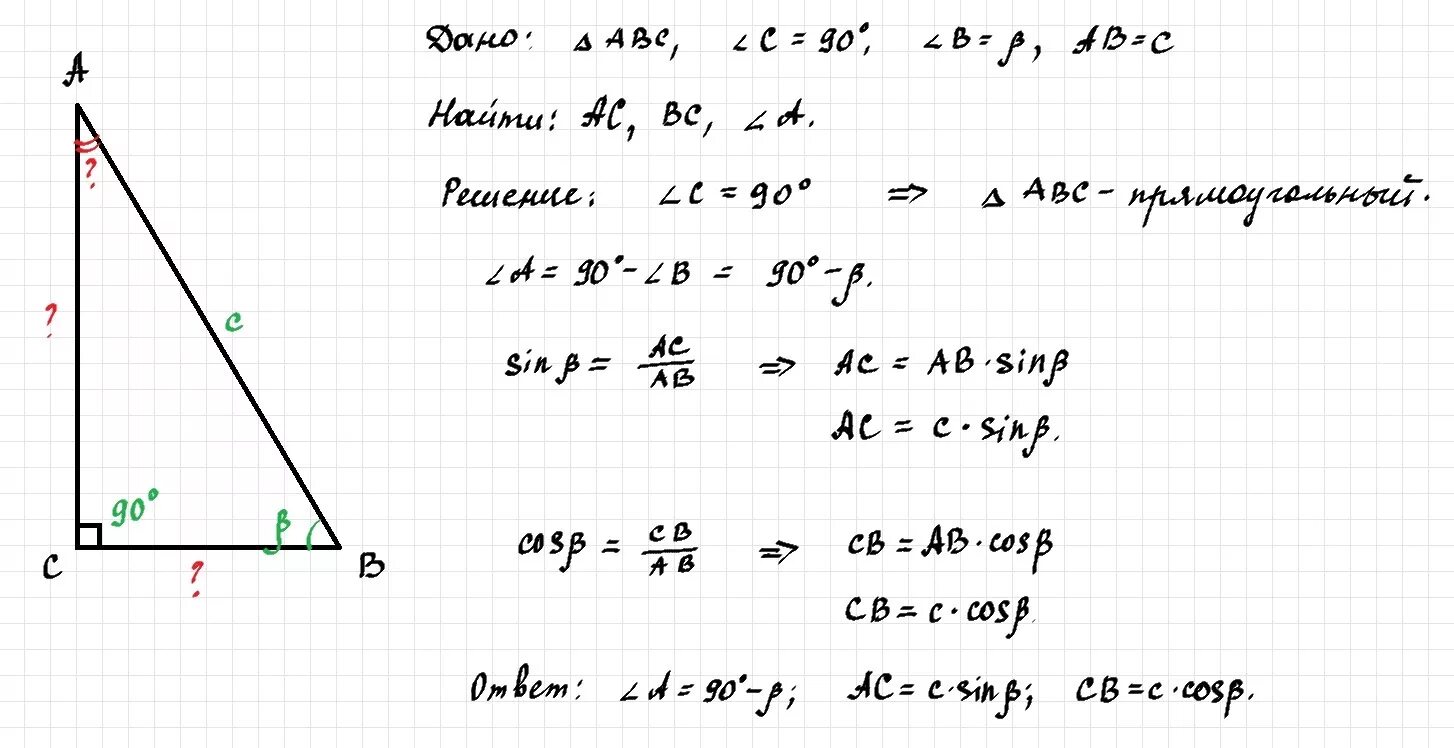 Дано: △ ABC, ∠C = 90°, ∠B = β, AB = c
Найти: AC, BC, ∠A.
Решение: ∠C = 90° ⇒ △ ABC - прямоугольный.
∠A = 90° - ∠B = 90° - β.
sin β = AC/AB ⇒ AC = AB · sin β
AC = c · sin β.
cos β = CB/AB ⇒ CB = AB · cos β
CB = c · cos β.
Ответ: ∠A = 90° - β; AC = c · sin β; CB = c · cos β.
A
?
?
c
90°
β
C
?
B